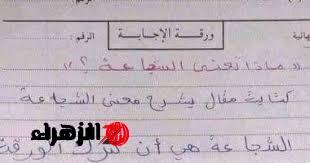 نهائية
ورقة الإجابة
الرقم :
الرقم :
« ماذا تعني الشجاعة ؟ »
كتابة مقال يشرح معنى الشجاعة
الزهراء
الشجاعة هي أن تترك الورقة